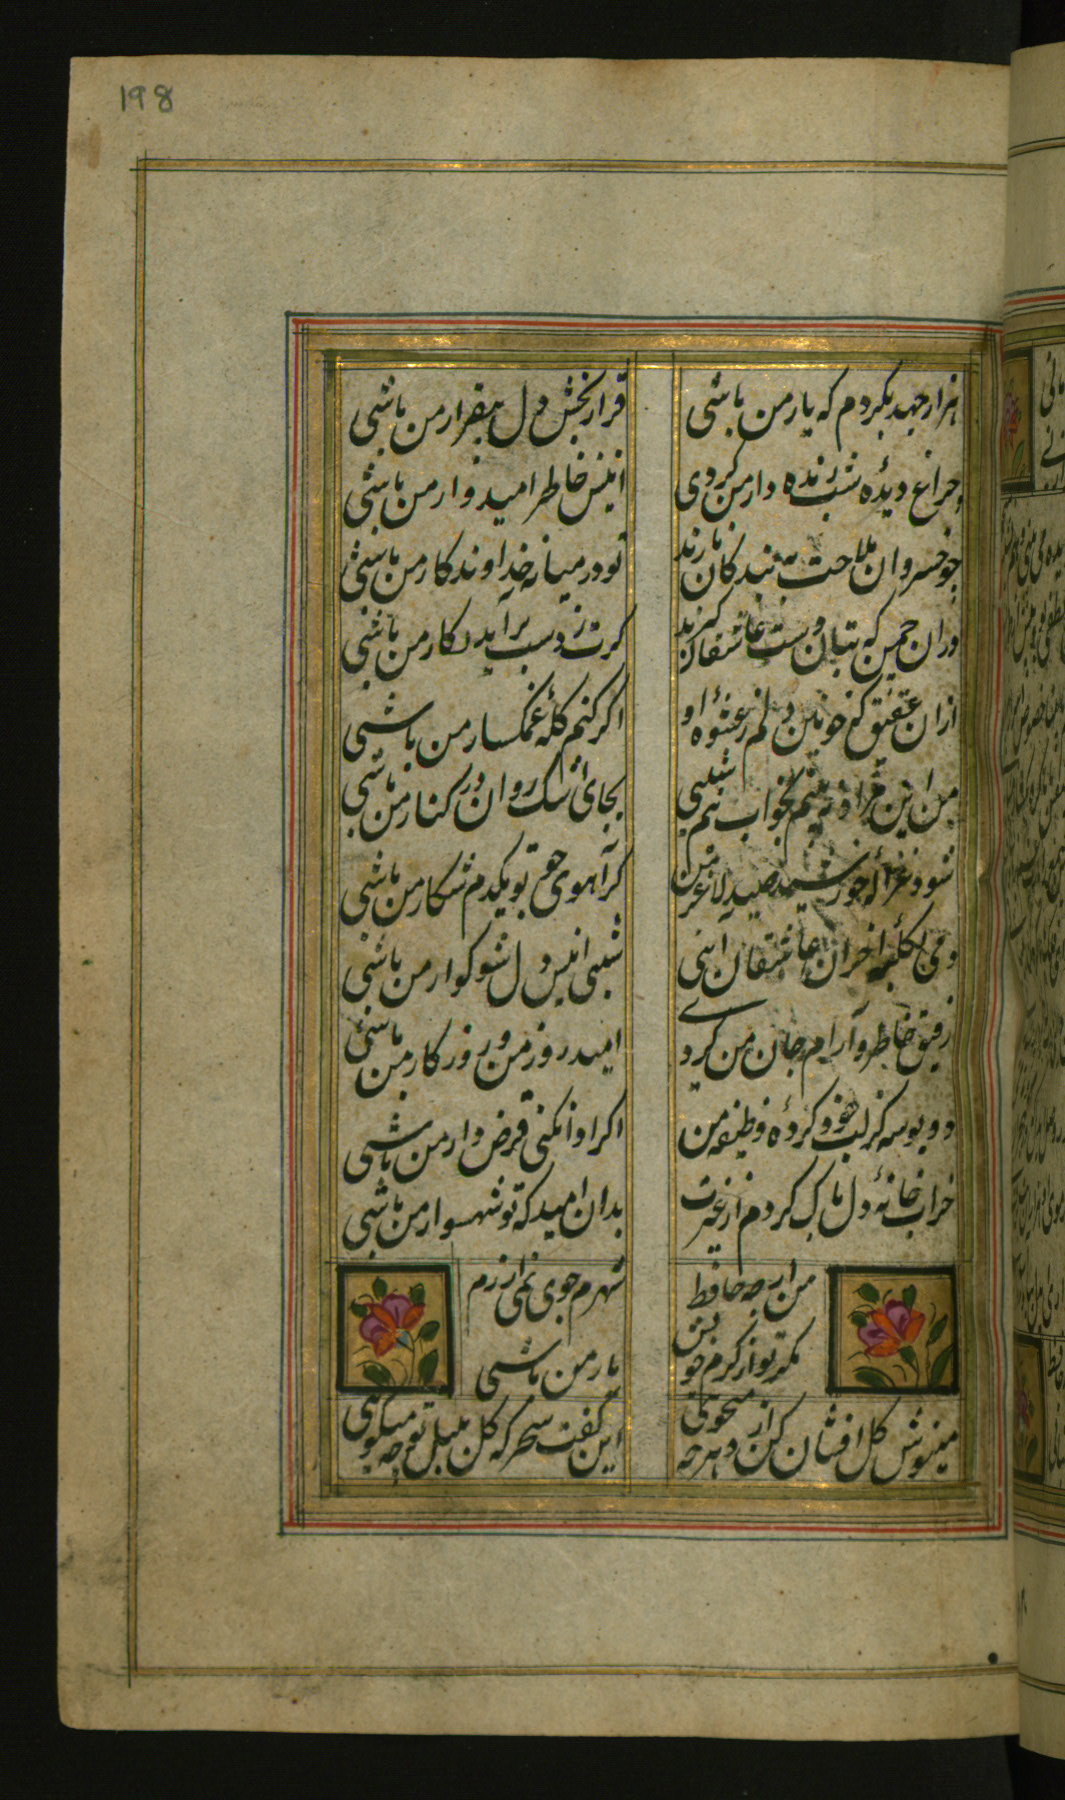 198
هزار جهد بکردم که یار من باشی
قرار بخش دل بیقرار من باشی
چراغ دیدۀ شب زنده دار من کردی
انیس خاطر امیدوار من باشی
چو خسروان ملاحت به بندکان نازند
تو در میانه خداوندکار من باشی
دران چمن که بتان دست عاشقان کیرند
کرت ز دست برآید نکار من باشی
ازان عقیق که خونین دلم ز عشوۀ او
اکر کنم کلۀ غمکسار من باشی
من این مراد نه بینم بخواب نیم شبی
بجای اشک روان در کنار من باشی
شود غزالۀ خورشید صید لاغر من
کر آهوی چو تو یکدم شکار من باشی
دمی بکلبۀ احزان عاشقان آیی
شبی انیس دل سوکوار من باشی
رفیق خاطر و آرام جان من کردی
امید روز من و روزکار من باشی
دو بوسه کز لب خود کردۀ وظیفه من
اکر ادا نکنی قرض دار من باشی
خراب خانۀ دل پاک کردم از غیرت
بدان امید که تو شهسوار من باشی
من ارچه حافظ
شهرم جوی نمی ارزم
مکر تو از کرم خویش
یار من باشی
مینوش کل افشان کن از دهر چه میجوئی
این کفت سحرکه کل بلبل تو چه میکوئی